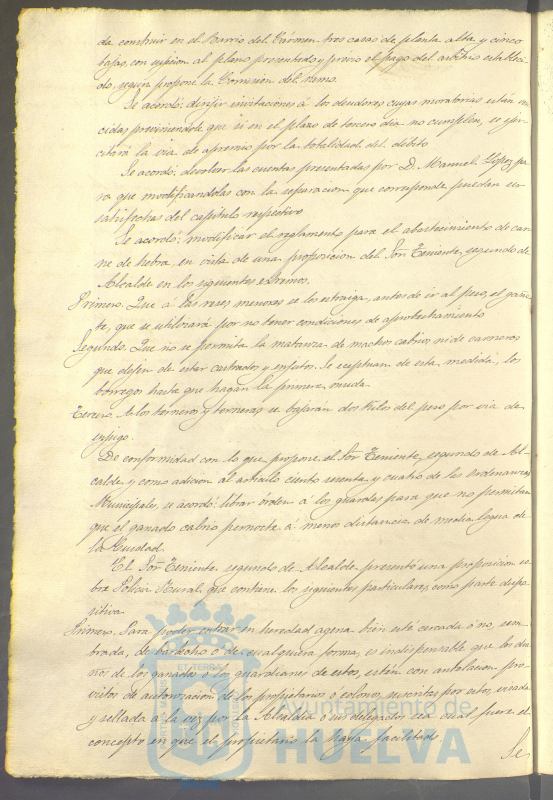 da construir en el Barrio del Cármen tres casas de planta alta y cinco
bajas, con sujecion al plano presentado y previo el pago del arbitrio estableci-
do, segun propone la Comision del ramo.
Se acordó: dirijir invitaciones á los deudores cuyas moratorias están ven-
cidas previniendole que si en el plazo de tercero dia no cumplen, se ejer-
citará la via de apremio por la totalidad del débito
Se acordó: devolver las cuentas presentadas por D. Manuel López pa-
ra que modificandolas con la separacion que corresponde puedan ser
satisfechas del capítulo respectivo
Se acordó: modificar el reglamento para el abastecimiento de car-
ne de hebra, en vista de una proposicion del Sor. Teniente, segundo de
Alcalde en los siguientes extremos.
Primero. Que á las reses menores se les extraiga, antes de ir al peso, el gaño-
te, que se utilizará por no tener condiciones de aprovechamiento
Segundo. Que no se permita la matanza de machos cabrios ni de carneros
que dejen de estar castrados y enjutos. Se exceptuan de esta medida, los
borregos hasta que hagan la primera muda
Tercero. A los terneros y terneras se bajarán dos kilos del peso por via de
enjugo.
De conformidad con lo que propone el Sor. Teniente, segundo de Al-
calde y como adicion al artículo ciento setenta y cuatro de las Ordenanzas
Municipales, se acordó: librar órden á los guardas para que no permitan
que el ganado cabrio pernocte á menos distancia de media legua de
la Ciudad.
El Sor. Teniente segundo de Alcalde presentó una proposicion so-
bre Policia Rural que contiene los siguientes particulares, como parte dispo-
sitiva.
Primero. Para poder entrar en heredad agena bien esté cercada ó no, sem-
brada, de barbecho ó de cualquiera forma, es indispensable que los due-
ños de los ganados ó los guardianes de estos, estén con antelacion pro-
vistos de autorizacion de los propietarios ó colonos, suscritas por estos, visada
y sellada á la vez por la Alcaldia ó sus delegados sea cual fuere el
concepto en que el propietario la haya facilitado
Se
Ayuntamiento de
HUELVA